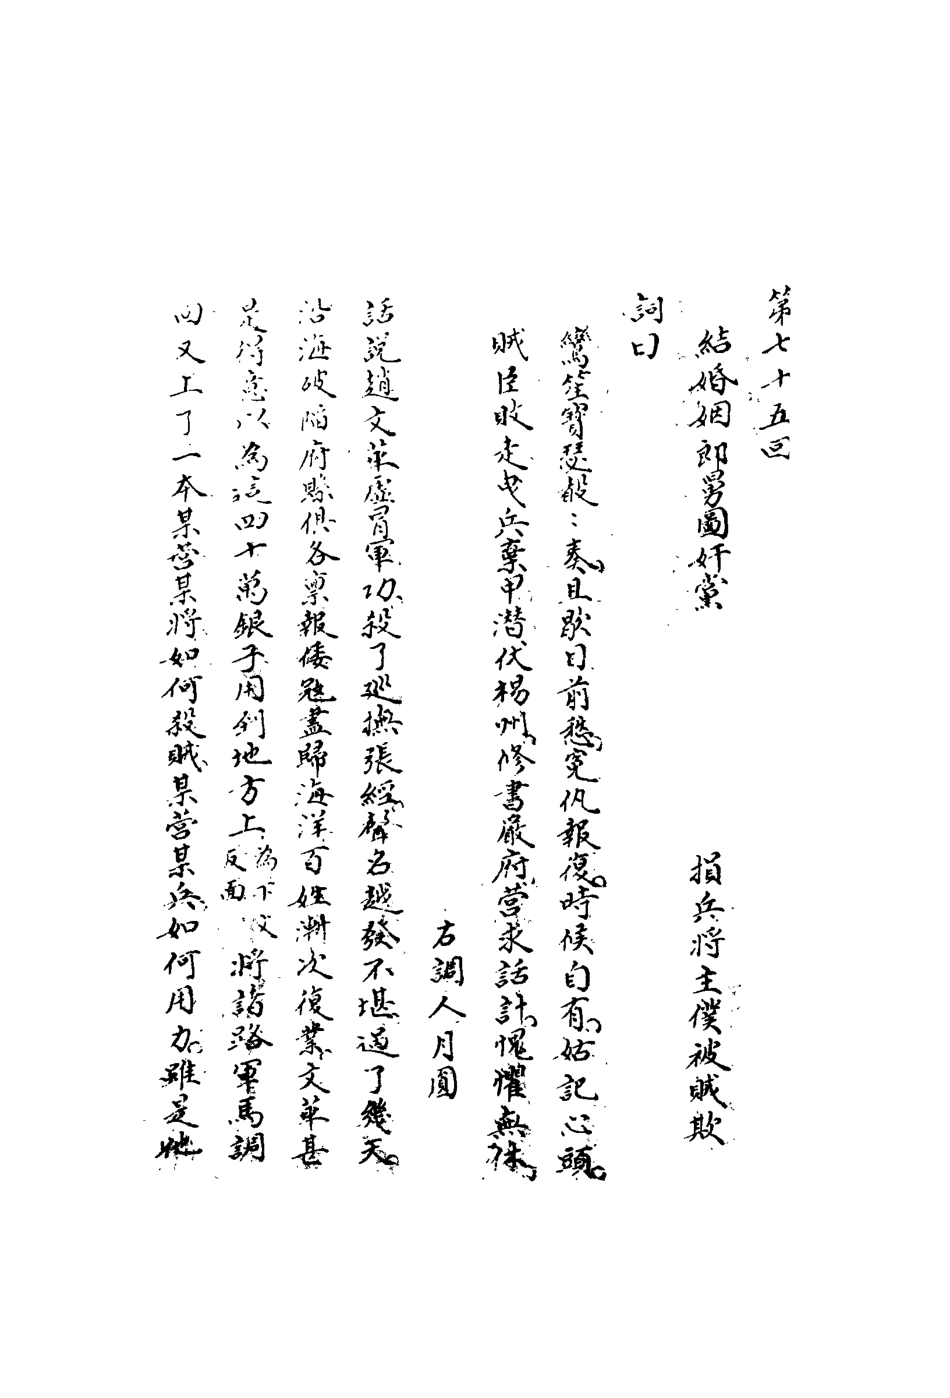 第七十五回
結婚姻郎舅圖奸黨　損兵將主僕被賊欺
詞曰
鸞笙寶瑟殷〻奏且歇目前愁冤仇報復時候自有姑記心頭
賊臣敗走曳兵棄甲潛伏楊州修書嚴府營求話計愧懼無休
右調人月圓
話說趙文華虛冒軍功殺了廵撫張經聲名越發不堪過了幾天
沿海破陷府縣俱各禀報倭寇盡歸海洋百姓漸次復業文華甚
是得意以為這四十萬銀子用到地方上為下文反面將諸路軍馬調
回又上了一本某營某將如何殺賊某營某兵如何用力雖是他